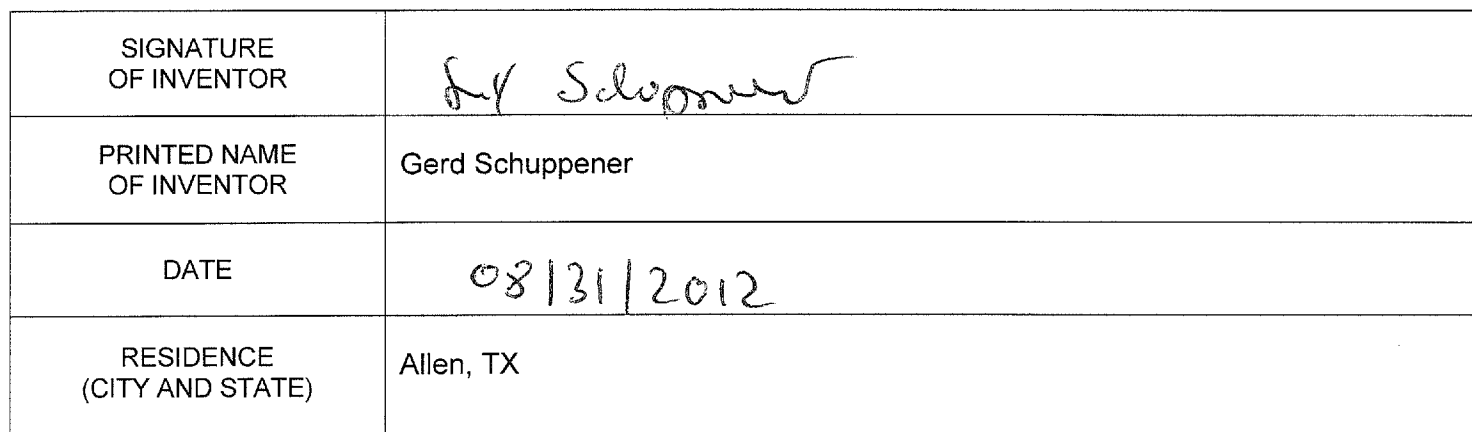 SIGNATURE
OF INVENTOR
PRINTED NAME
OF INVENTOR
Gerd Schuppener
DATE
08/31/2012
RESIDENCE
(CITY AND STATE)
Allen, TX